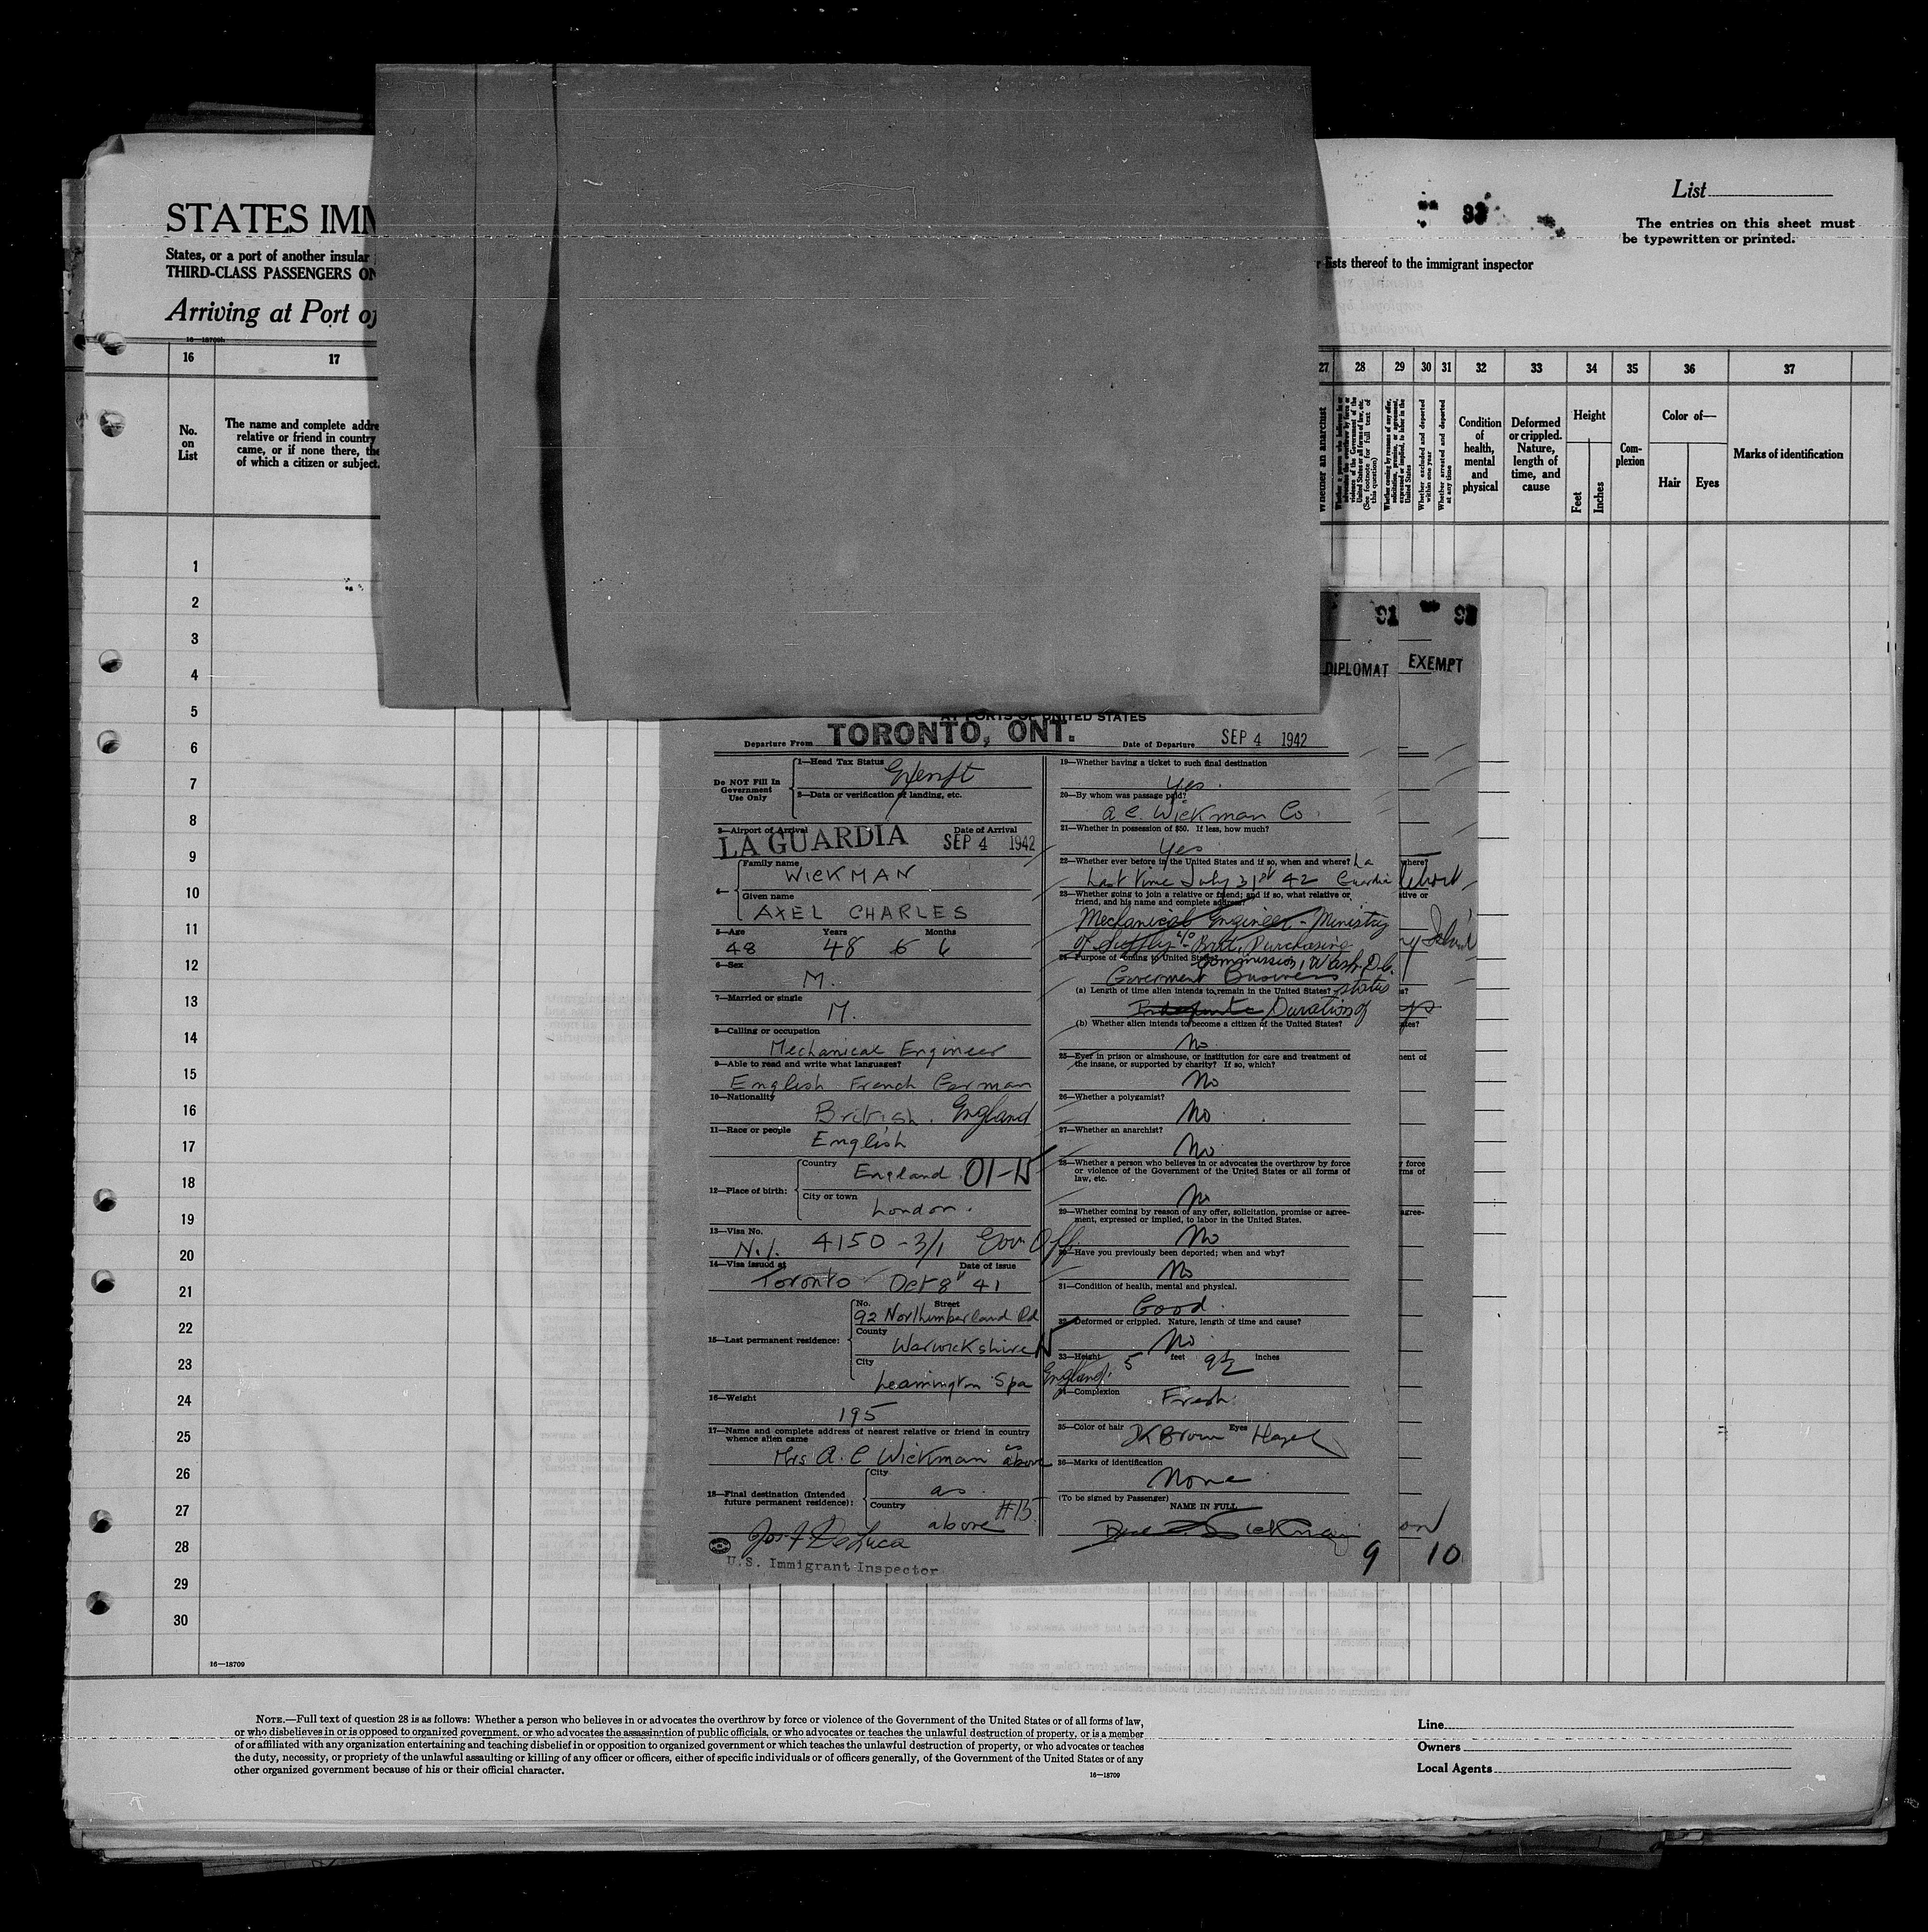 STATES IMM
States, or a port of another insular
THIRD-CLASS PASSENGERS ON
Arriving at Port of
33
List
The entries on this sheet must
be typewritten or printed.
lists thereof to the immigrant inspector
16—18709
16 17 27 28 29 30 31 32 33 34 35 36 37
No.
on
List
The name and complete addre
relative or friend in country
came, or if none there, the
of which a citizen or subject.
Whether an anarchist
Whether a person who believes in or
advocates the overthrow by force or
violence of the Government of the
United States or all forms of law, etc.
(See footnote for full text of
this question)
Whether coming by reason of any offer,
solicitation, promise, or agreement,
expressed or implied, to labor in the
United States
Whether excluded and deported
within one year
Whether arrested and deported
at any time
Condition
of
health,
mental
and
physical
Deformed
or crippled.
Nature,
length of
time, and
cause
Height
Feet
Inches
Com-
plexion
Color of—
Hair Eyes
Marks of identification
1
2
3
4
5
6
7
8
9
10
11
12
13
14
15
16
17
18
19
20
21
22
23
24
25
26
27
28
29
30
16—18709
91
DIPLOMAT
EXEMPT
AT PORTS OF UNITED STATES
Departure From TORONTO, ONT. Date of Departure SEP 4 1942
Do NOT Fill In
Government
Use Only
1—Head Tax Status Exempt
2—Data or verification of landing, etc.
3—Airport of Arrival Date of Arrival
LA GUARDIA SEP 4 1942
4—
Family name
WICKMAN
Given name
AXEL CHARLES
5—Age Years Months
48 48 6 6
6—Sex
M.
7—Married or single
M.
8—Calling or occupation
Mechanical Engineer
9—Able to read and write what languages?
English French German
10—Nationality
British. England
11—Race or people
English
12—Place of birth:
Country
England 01-W
City or town
London.
13—Visa No.
N.I. 4150-3/1 Gov Off.
14—Visa issued at Date of issue
Toronto Oct 8" 41
15—Last permanent residence:
No. Street
92 Northumberland Rd
County
Warwickshire
City
Leamington Spa England.
16—Weight
195
17—Name and complete address of nearest relative or friend in country
whence alien came
Mrs A. C Wickman as above
18—Final destination (Intended
future permanent residence):
City
as
Country
above #15
Jos. F. DeLuca
U.S. Immigrant Inspector
19—Whether having a ticket to such final destination
Yes.
20—By whom was passage paid?
A C. Wickman Co.
21—Whether in possession of $50. If less, how much?
Yes
22—Whether ever before in the United States and if so, when and where? La
Last time July 31st 42 Guardia
23—Whether going to join a relative or friend; and if so, what relative or
friend, and his name and complete address?
Mechanical Engineer - Ministry
of Supply c/o Brit. Purchasing
Commission, Wash. D.C.
24—Purpose of coming to United States
Goverment Business
(a) Length of time alien intends to remain in the United States? status
Indefinite Duration of
(b) Whether alien intends to become a citizen of the United States?
No
25—Ever in prison or almshouse, or institution for care and treatment of
the insane, or supported by charity? If so, which?
No
26—Whether a polygamist?
No
27—Whether an anarchist?
No
28—Whether a person who believes in or advocates the overthrow by force
or violence of the Government of the United States or all forms of
law, etc.
No
29—Whether coming by reason of any offer, solicitation, promise or agree-
ment, expressed or implied, to labor in the United States.
No
30—Have you previously been deported; when and why?
No
31—Condition of health, mental and physical.
Good.
32—Deformed or crippled. Nature, length of time and cause?
No
33—Height 5 feet 9½ inches
34—Complexion
Fresh.
35—Color of hair DK Brown Eyes Hazel
36—Marks of identification
None
(To be signed by Passenger)
NAME IN FULL
9 10
where?
tive or
ment of
y force
rms of
agree-
NOTE.—Full text of question 28 is as follows: Whether a person who believes in or advocates the overthrow by force or violence of the Government of the United States or of all forms of law,
or who disbelieves in or is opposed to organized government, or who advocates the assassination of public officials, or who advocates or teaches the unlawful destruction of property, or is a member
of or affiliated with any organization entertaining and teaching disbelief in or opposition to organized government or which teaches the unlawful destruction of property, or who advocates or teaches
the duty, necessity, or propriety of the unlawful assaulting or killing of any officer or officers, either of specific individuals or of officers generally, of the Government of the United States or of any
other organized government because of his or their official character.
16—18709
Line
Owners
Local Agents